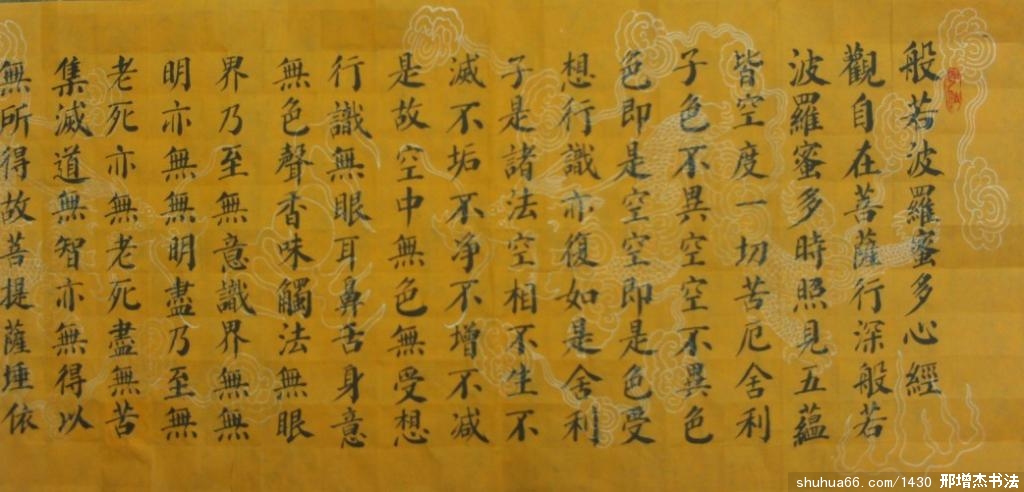 般若波羅蜜多心經
觀自在菩薩行深般若
波羅蜜多時照見五蘊
皆空度一切苦厄舍利
子色不異空空不異色
色即是空空即是色受
想行識亦復如是舍利
子是諸法空相不生不
滅不垢不净不增不减
是故空中無色無受想
行識無眼耳鼻舌身意
無色聲香味觸法無眼
界乃至無意識界無無
明亦無無明盡乃至無
老死亦無老死盡無苦
集滅道無智亦無得以
無所得故菩提薩埵依
shuhua66.com/1430 邢增杰书法